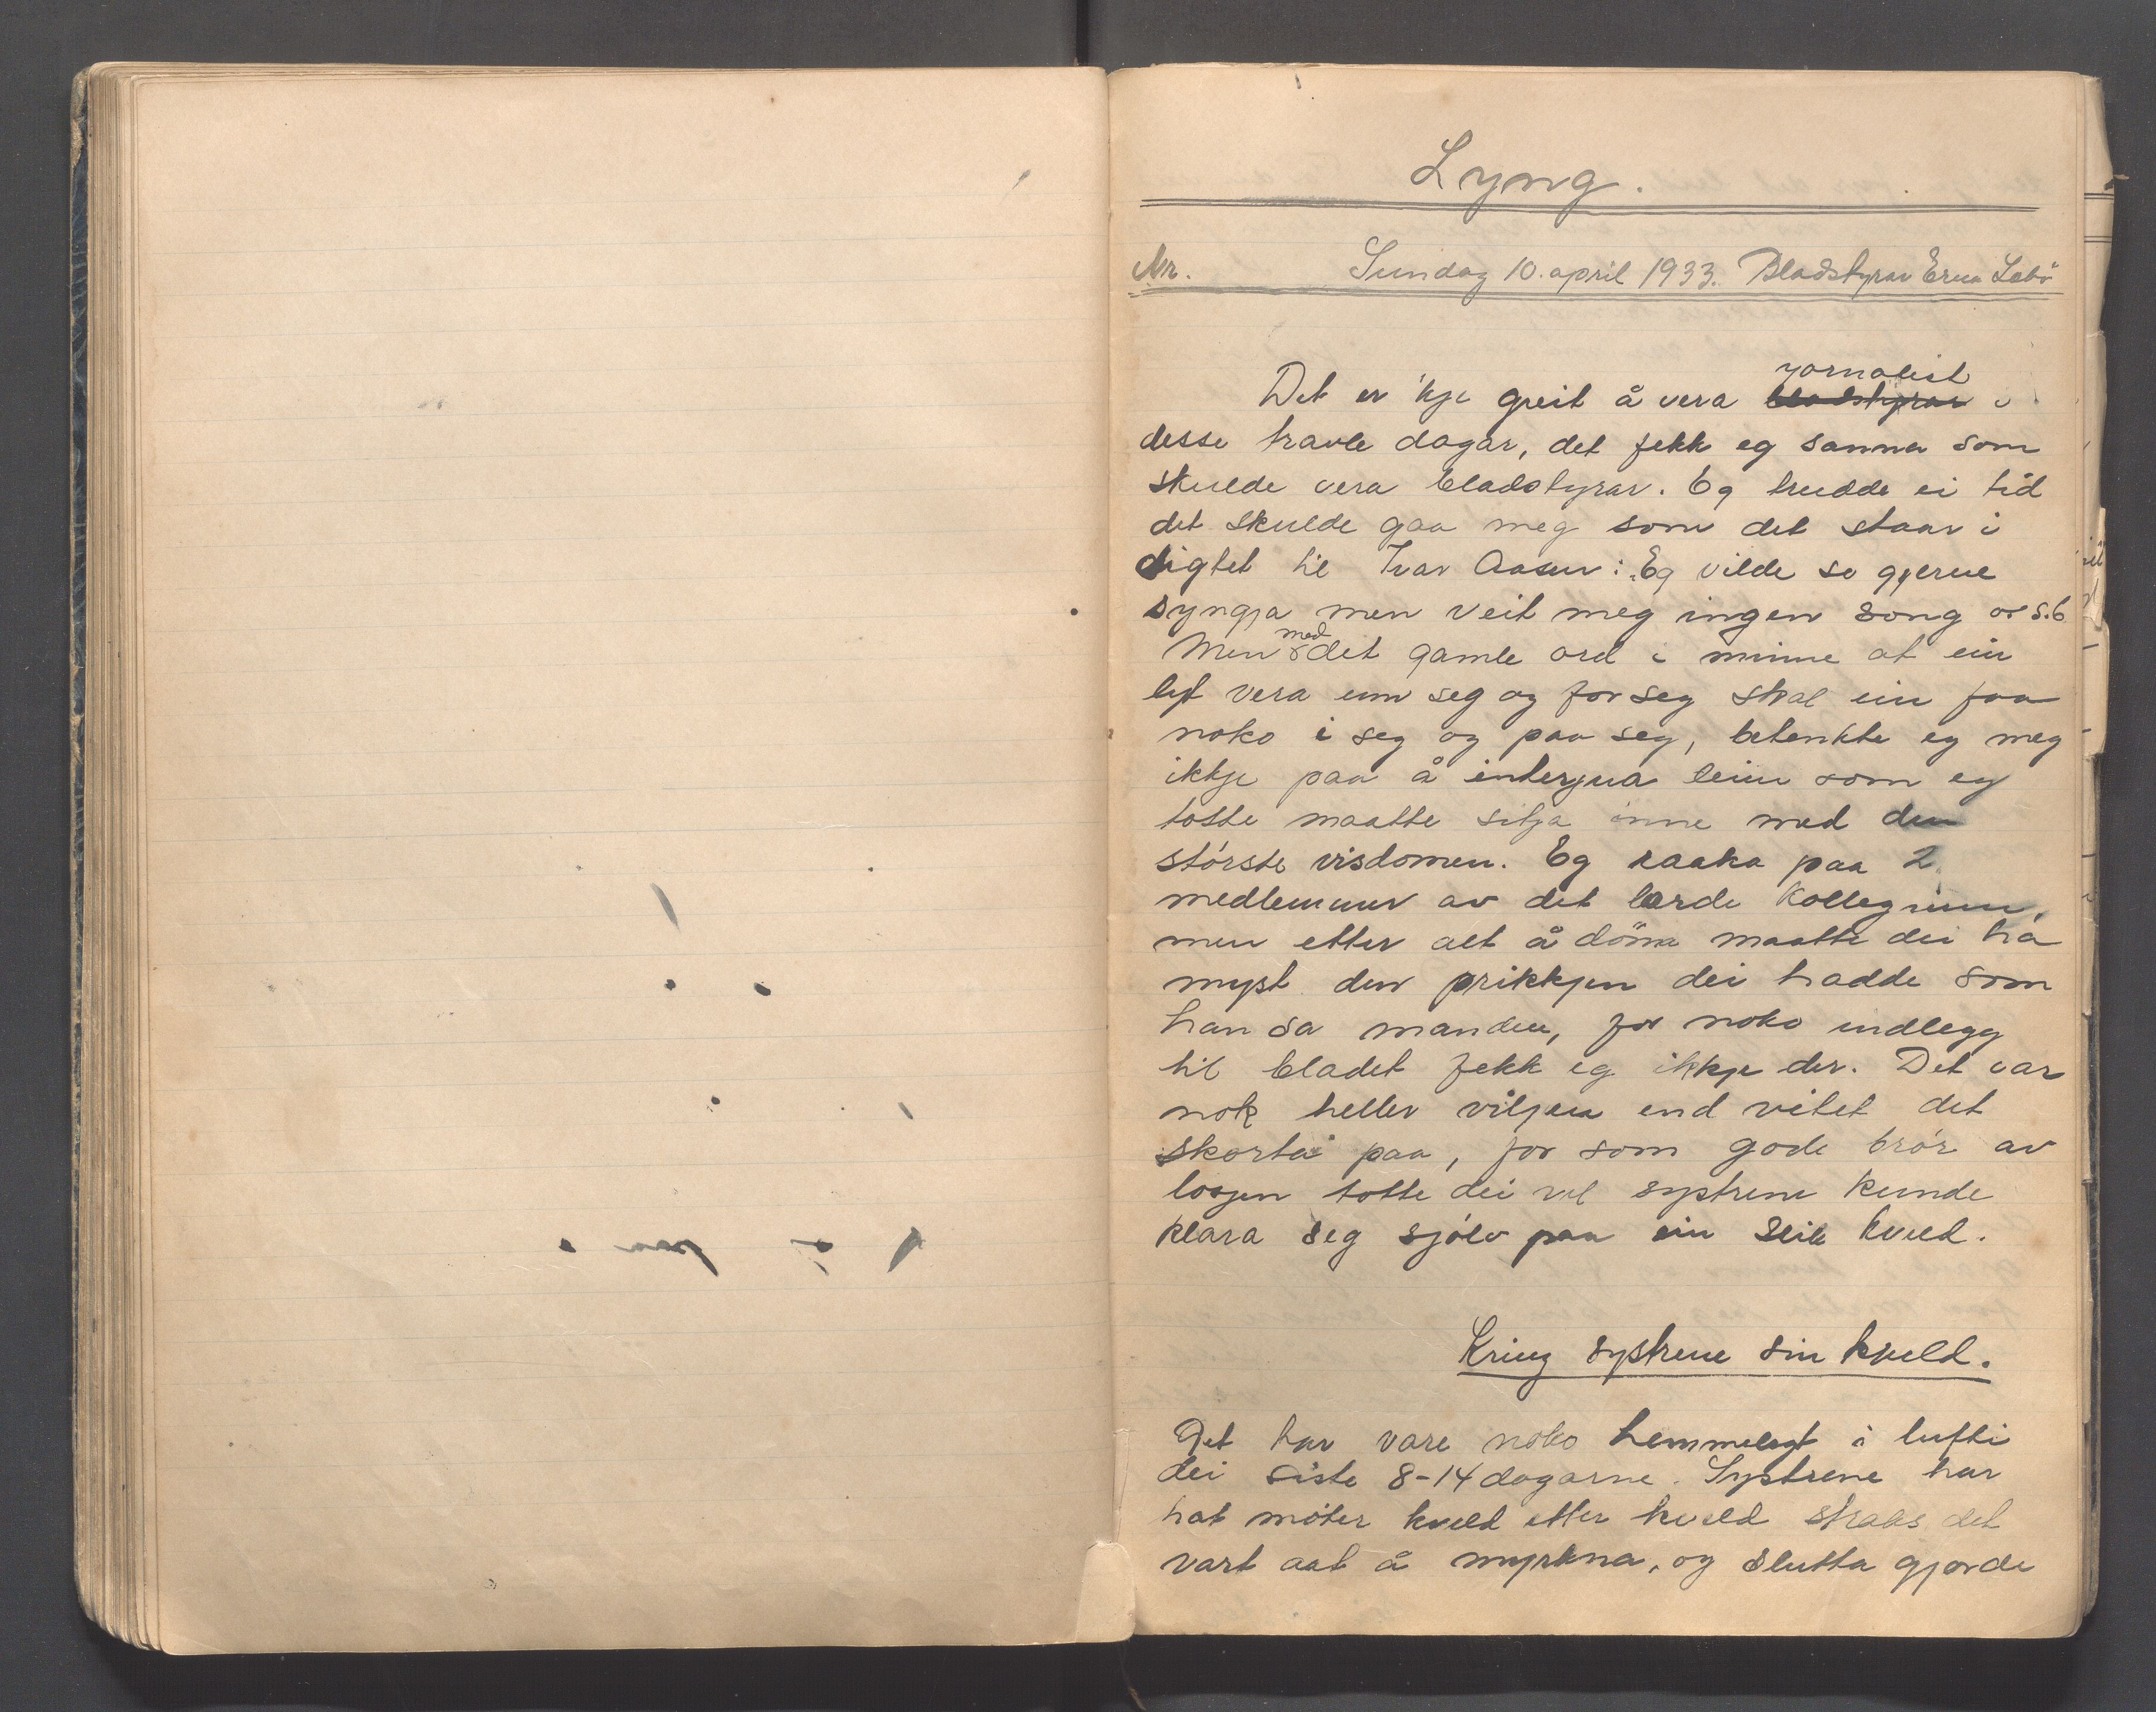 Lyng.
Nr. Sundag 10. april 1933. Bladstyrar Erna Lebö
jornalist
Det er 'kje greit å vera bladstyrar i
desse travle dagar, det fekk eg sanna som
skulde vera bladstyrar. Eg trudde ei tid
det skulde gaa meg som det staar i
digtet til Ivar Aasen: "Eg vilde so gjerne
syngja men veit meg ingen song o s.b
Men med det gamle ord i minne at ein
lyt vera um seg og for seg skal ein faa
noko i seg og paa seg, betenkte eg meg
ikkje paa å interjua deim som eg
totte maatte sitja inne med den
störste visdomen. Eg raaka paa 2
medlemmer av det lærde kollegium,
men etter alt å döma maatte dei ha
myst den prikkjen dei hadde som
han sa manden, for noko indlegg
til bladet fekk eg ikkje der. Det var
nok heller viljen end vitet det
skorta paa, for som gode brör av
losjen totte dei vel systrene kunde
klara seg sjölv paa ein slik kveld.
Kring systrene sin kveld.
Det har vore noko hemmelegt i lufti
dei siste 8-14 dagarne. Systrene har
hat möter kveld etter kveld straks det
vart aat å myrkna, og slutta gjorde